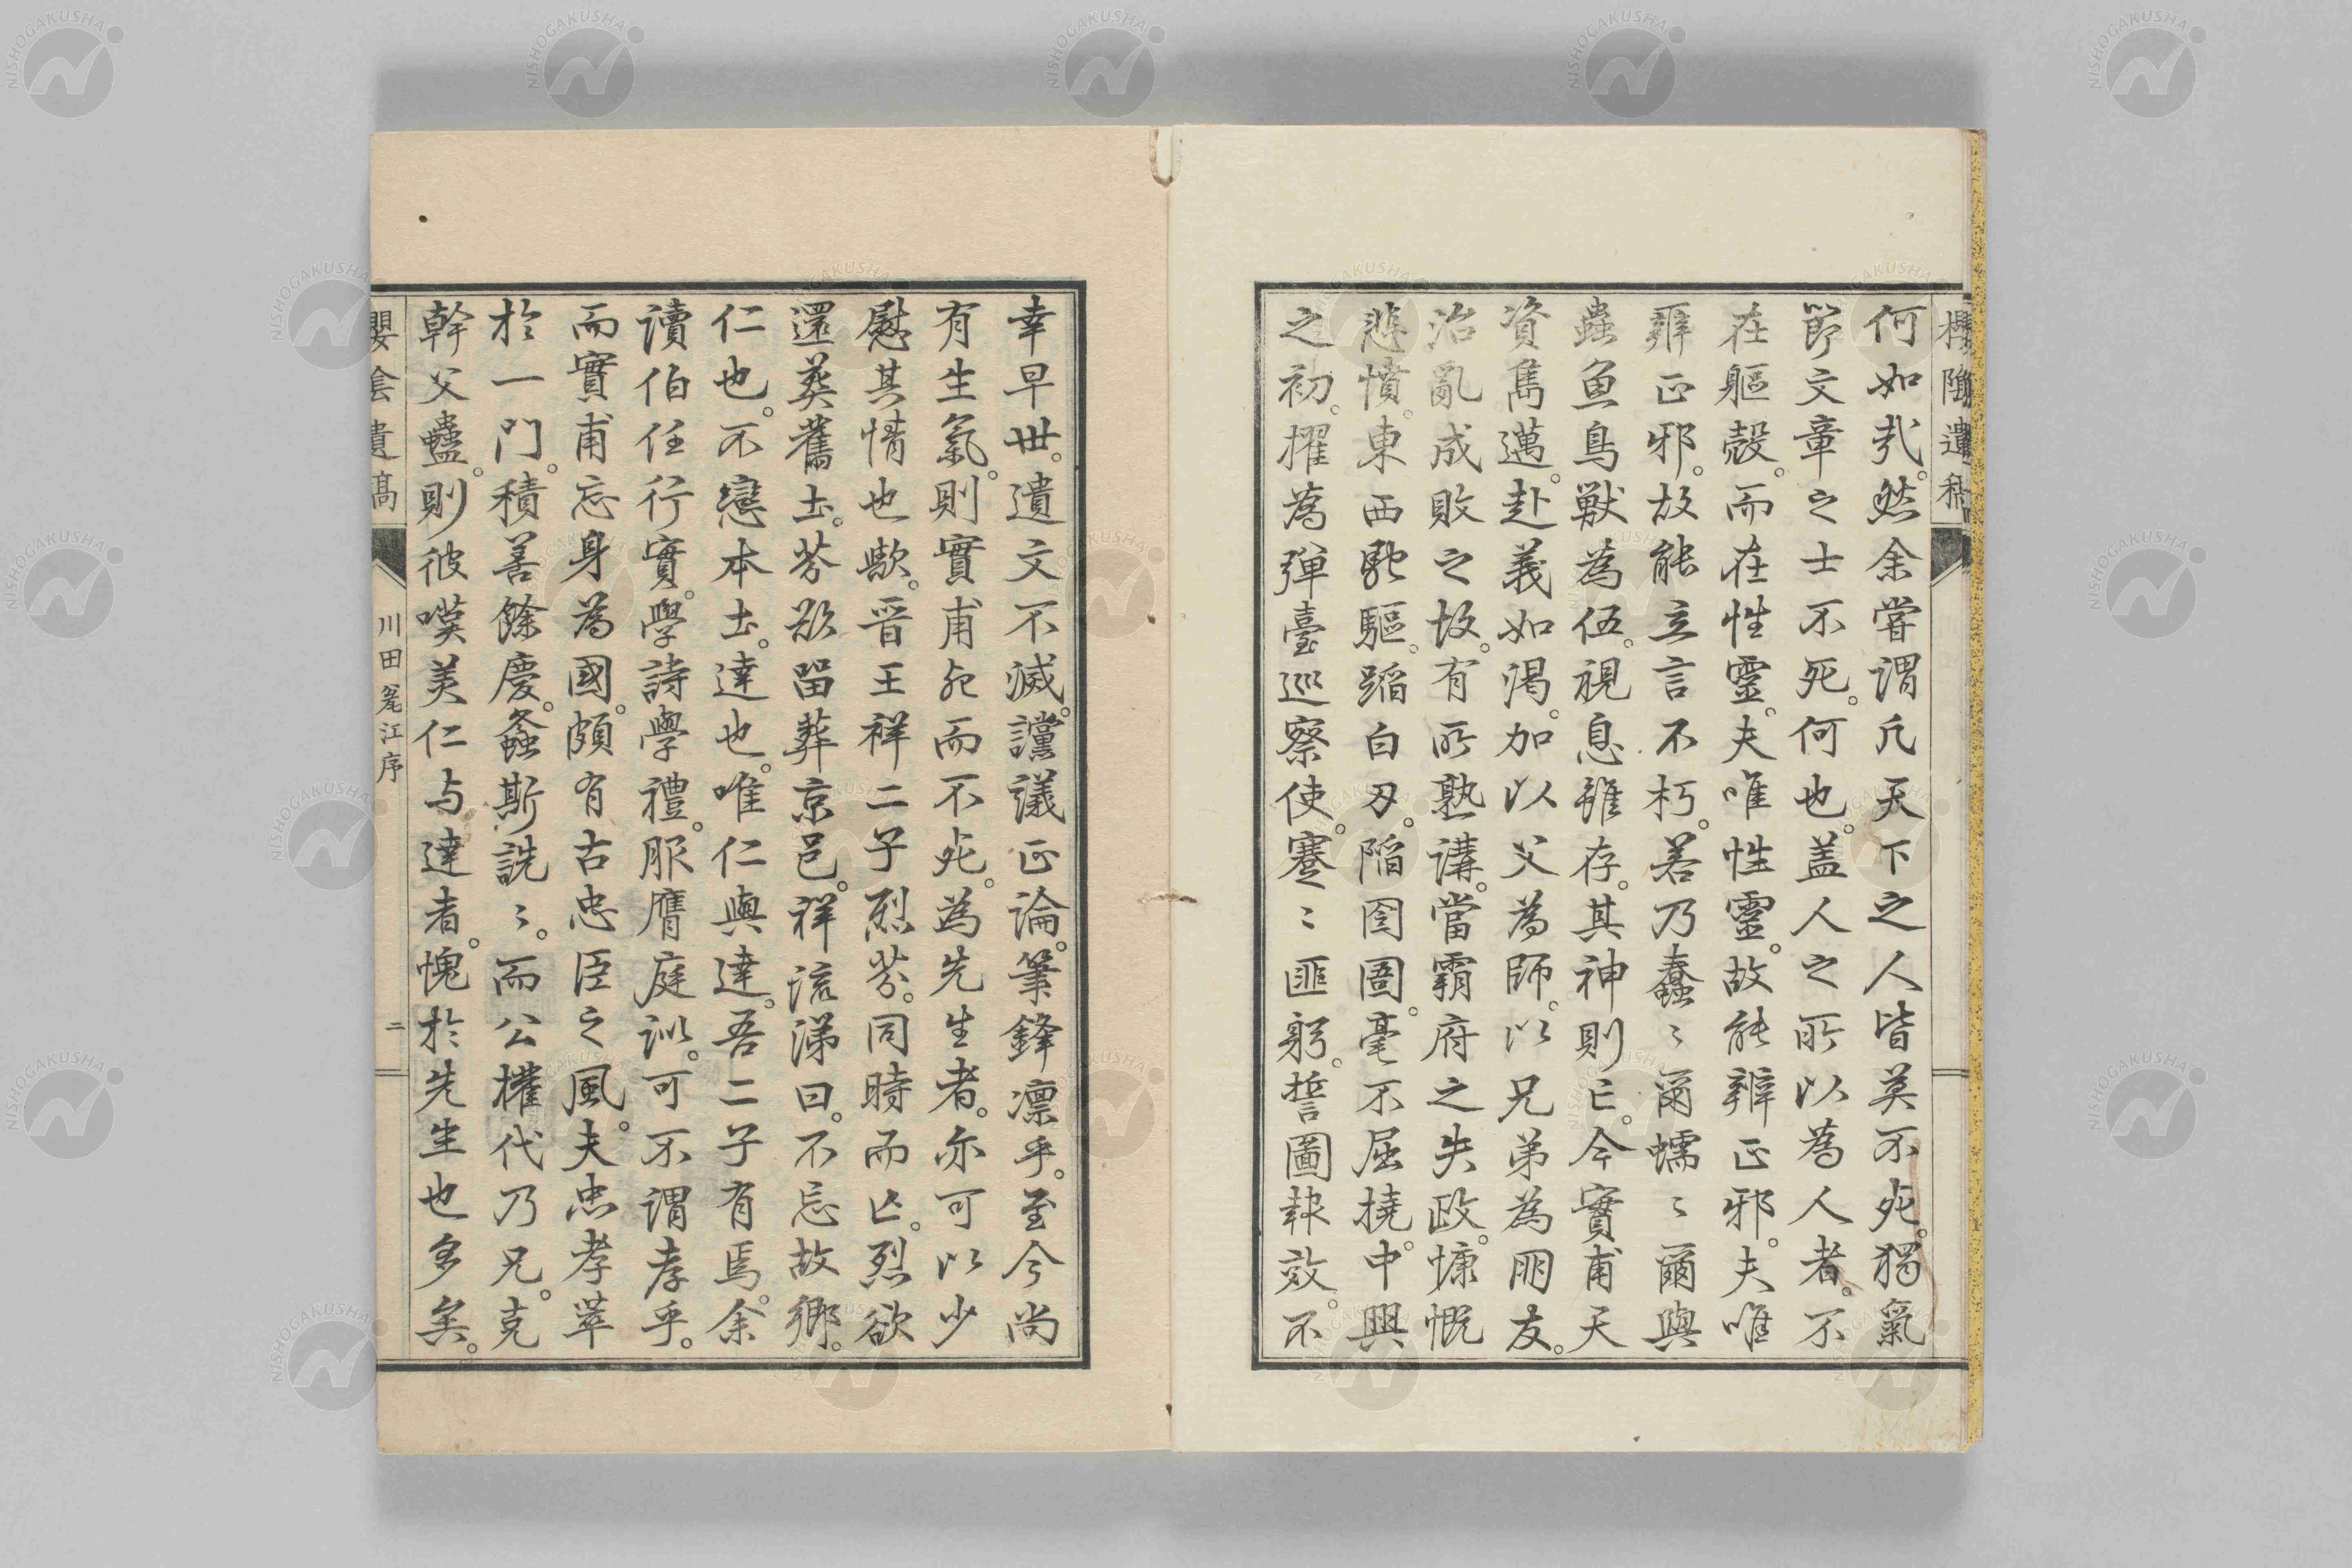 何如哉。然余嘗謂凡天下之人皆莫不死。獨氣
節文章之士不死。何也。盖人之所以為人者。不
在軀殼。而在性靈。夫唯性靈。故能辨正邪。夫唯
辨正邪。故能立言不朽。若乃蠢〻爾蠕〻爾與
蟲魚鳥獣為伍。視息雖存。其神則亡。今實甫天
資雋邁。赴義如渇。加以父為師。以兄弟為朋友。
治亂成敗之故。有所熟講。當霸府之失政。慷慨
悲憤。東西馳驅。蹈白刃。陥囹圄。毫不屈撓。中興
之初。擢為弾臺巡察使。蹇〻匪躬。誓圖報效。不
幸早世。遺文不滅。讜議正論。筆鋒凛乎。至今尚
有生氣。則實甫死而不死。為先生者。亦可以少
慰其情也歟。晋王祥二子烈芬。同時而亡。烈欲
還葬舊土。芬欲留葬京邑。祥流涕曰。不忘故郷。
仁也。不戀本土。達也。唯仁與達。吾二子有焉。余
讀伯任行實。學詩學禮。服膺庭訓。可不謂孝乎。
而實甫忘身為國。頗有古忠臣之風。夫忠孝萃
於一門。積善餘慶。螽斯詵〻。而公權代乃兄。克
幹父蠱。則彼嘆美仁与達者。愧於先生也多矣。
櫻陰遺稿
川田甕江序
二